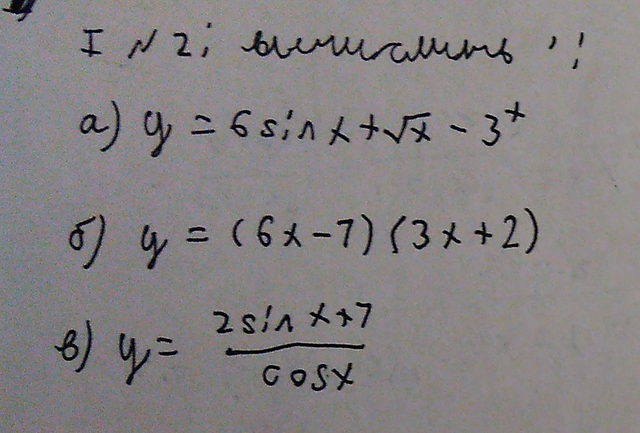 I N 2; вычислить ' ;
а) y = 6 sin x + √x - 3^x
б) y = (6x - 7) (3x + 2)
в) y = (2 sin x + 7) / cos x